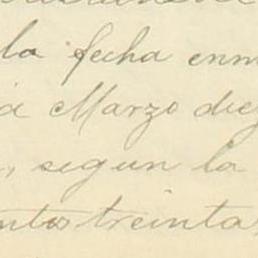 la fecha enm
á Marzo die
, segun la
ntos treinta